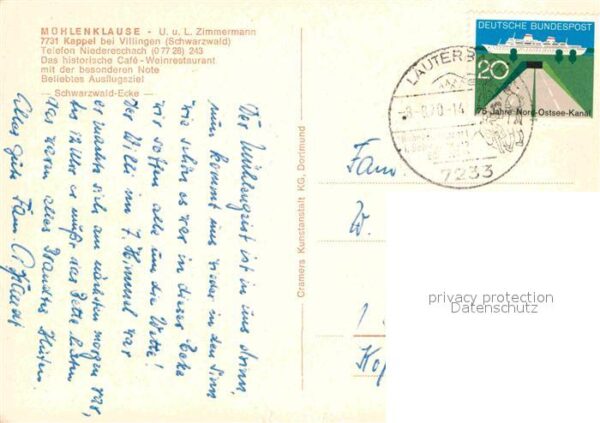 MÜHLENKLAUSE - U. u. L. Zimmermann
7731 Kappel bei Villingen (Schwarzwald)
Telefon Niedereschach (0 77 28) 243
Das historische Café-Weinrestaurant
mit der besonderen Note
Beliebtes Ausflugsziel
— Schwarzwald-Ecke —
Der Mühlengeist ist in uns drinn,
nun kommt uns wieder in den Sinn
wie schön es war in dieser Ecke
wir saßen alle um die Wette!
Der Willi im 7. Himmel war
er machte sich am nächsten morgen rar,
das war alles Brandts Hüten.
Alles gute Fam.
Cramers Kunstanstalt KG, Dortmund
DEUTSCHE BUNDESPOST
20
75 Jahre Nord-Ostsee-Kanal
LAUTERB
-8.70-14
7233
Fam.
W.
1
privacy protection
Datenschutz